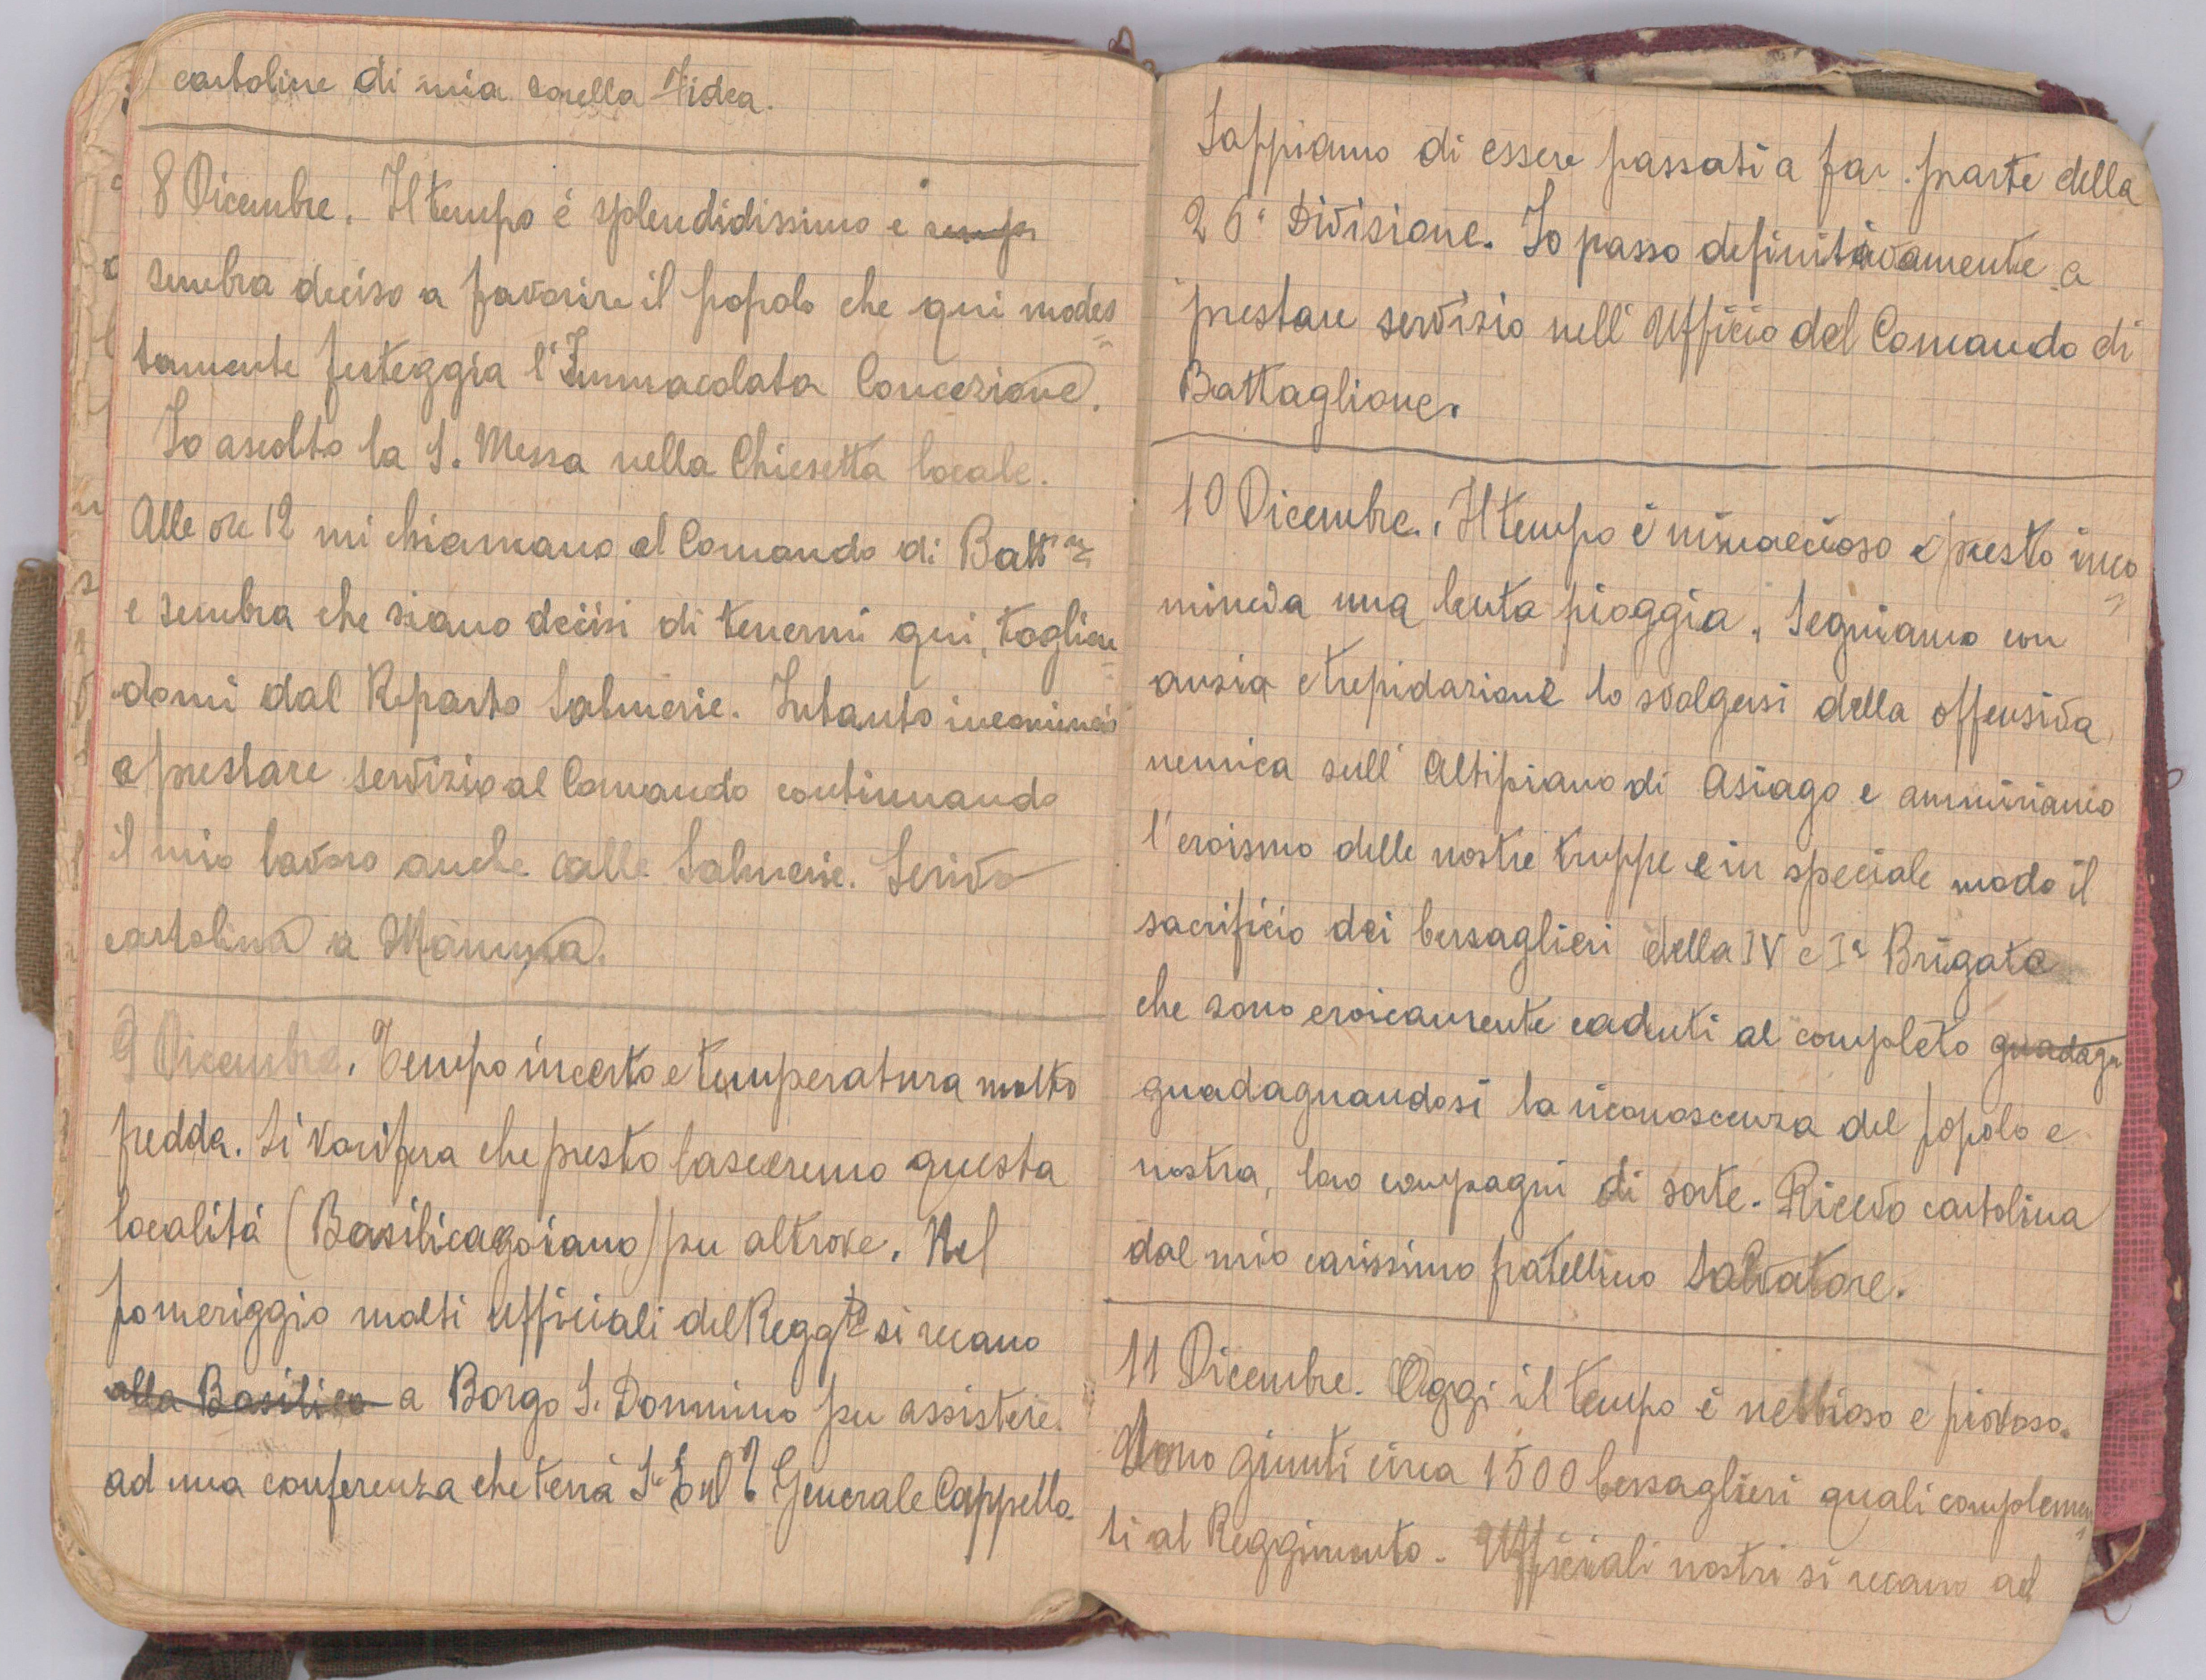 cartoline di mia sorella Fidea.
8 Dicembre. Il tempo é splendidissimo e
sembra deciso a favorire il popolo che qui modes=
tamente festeggia l'Immacolata Concezione.
Io ascolto la S. Messa nella Chiesetta locale.
Alle ore 12 mi chiamano al Comando di Battne
e sembra che siano decisi di tenermi qui, toglien=
domi dal Reparto Salmerie. Intanto incomincio
a prestare servizio al Comando continuando
il mio lavoro anche alle Salmerie. Scrivo
cartolina a Mamma.
9 Dicembre. Tempo incerto e temperatura molto
fredda. Si vocifera che presto lasceremo questa
localitá (Basilicagoiano) per altrove. Nel
pomeriggio molti Ufficiali del Reggto si recano
alla Basilica a Borgo S. Donnino per assistere
ad una conferenza che terrà S. E. Generale Cappello.
Sappiamo di essere passati a far parte della
26ª Divisione. Io passo definitivamente a
prestare servizio nell'Ufficio del Comando di
Battaglione.
10 Dicembre. Il tempo é minaccioso e presto inco=
mincia una lenta pioggia. Seguiamo con
ansia e trepidazione lo svolgersi della offensiva
nemica sull'Altipiano di Asiago e ammiriamo
l'eroismo delle nostre truppe e in speciale modo il
sacrificio dei bersaglieri della IV e Iª Brigata
che sono eroicamente caduti al completo guadagn
guadagnandosi la riconoscenza del popolo e
nostra, loro compagni di sorte. Ricevo cartolina
dal mio carissimo fratellino Salvatore.
11 Dicembre. Oggi il tempo é nebbioso e piovoso.
Sono giunti circa 1500 bersaglieri quali complemen=
ti al Reggimento. Ufficiali nostri si recano ad